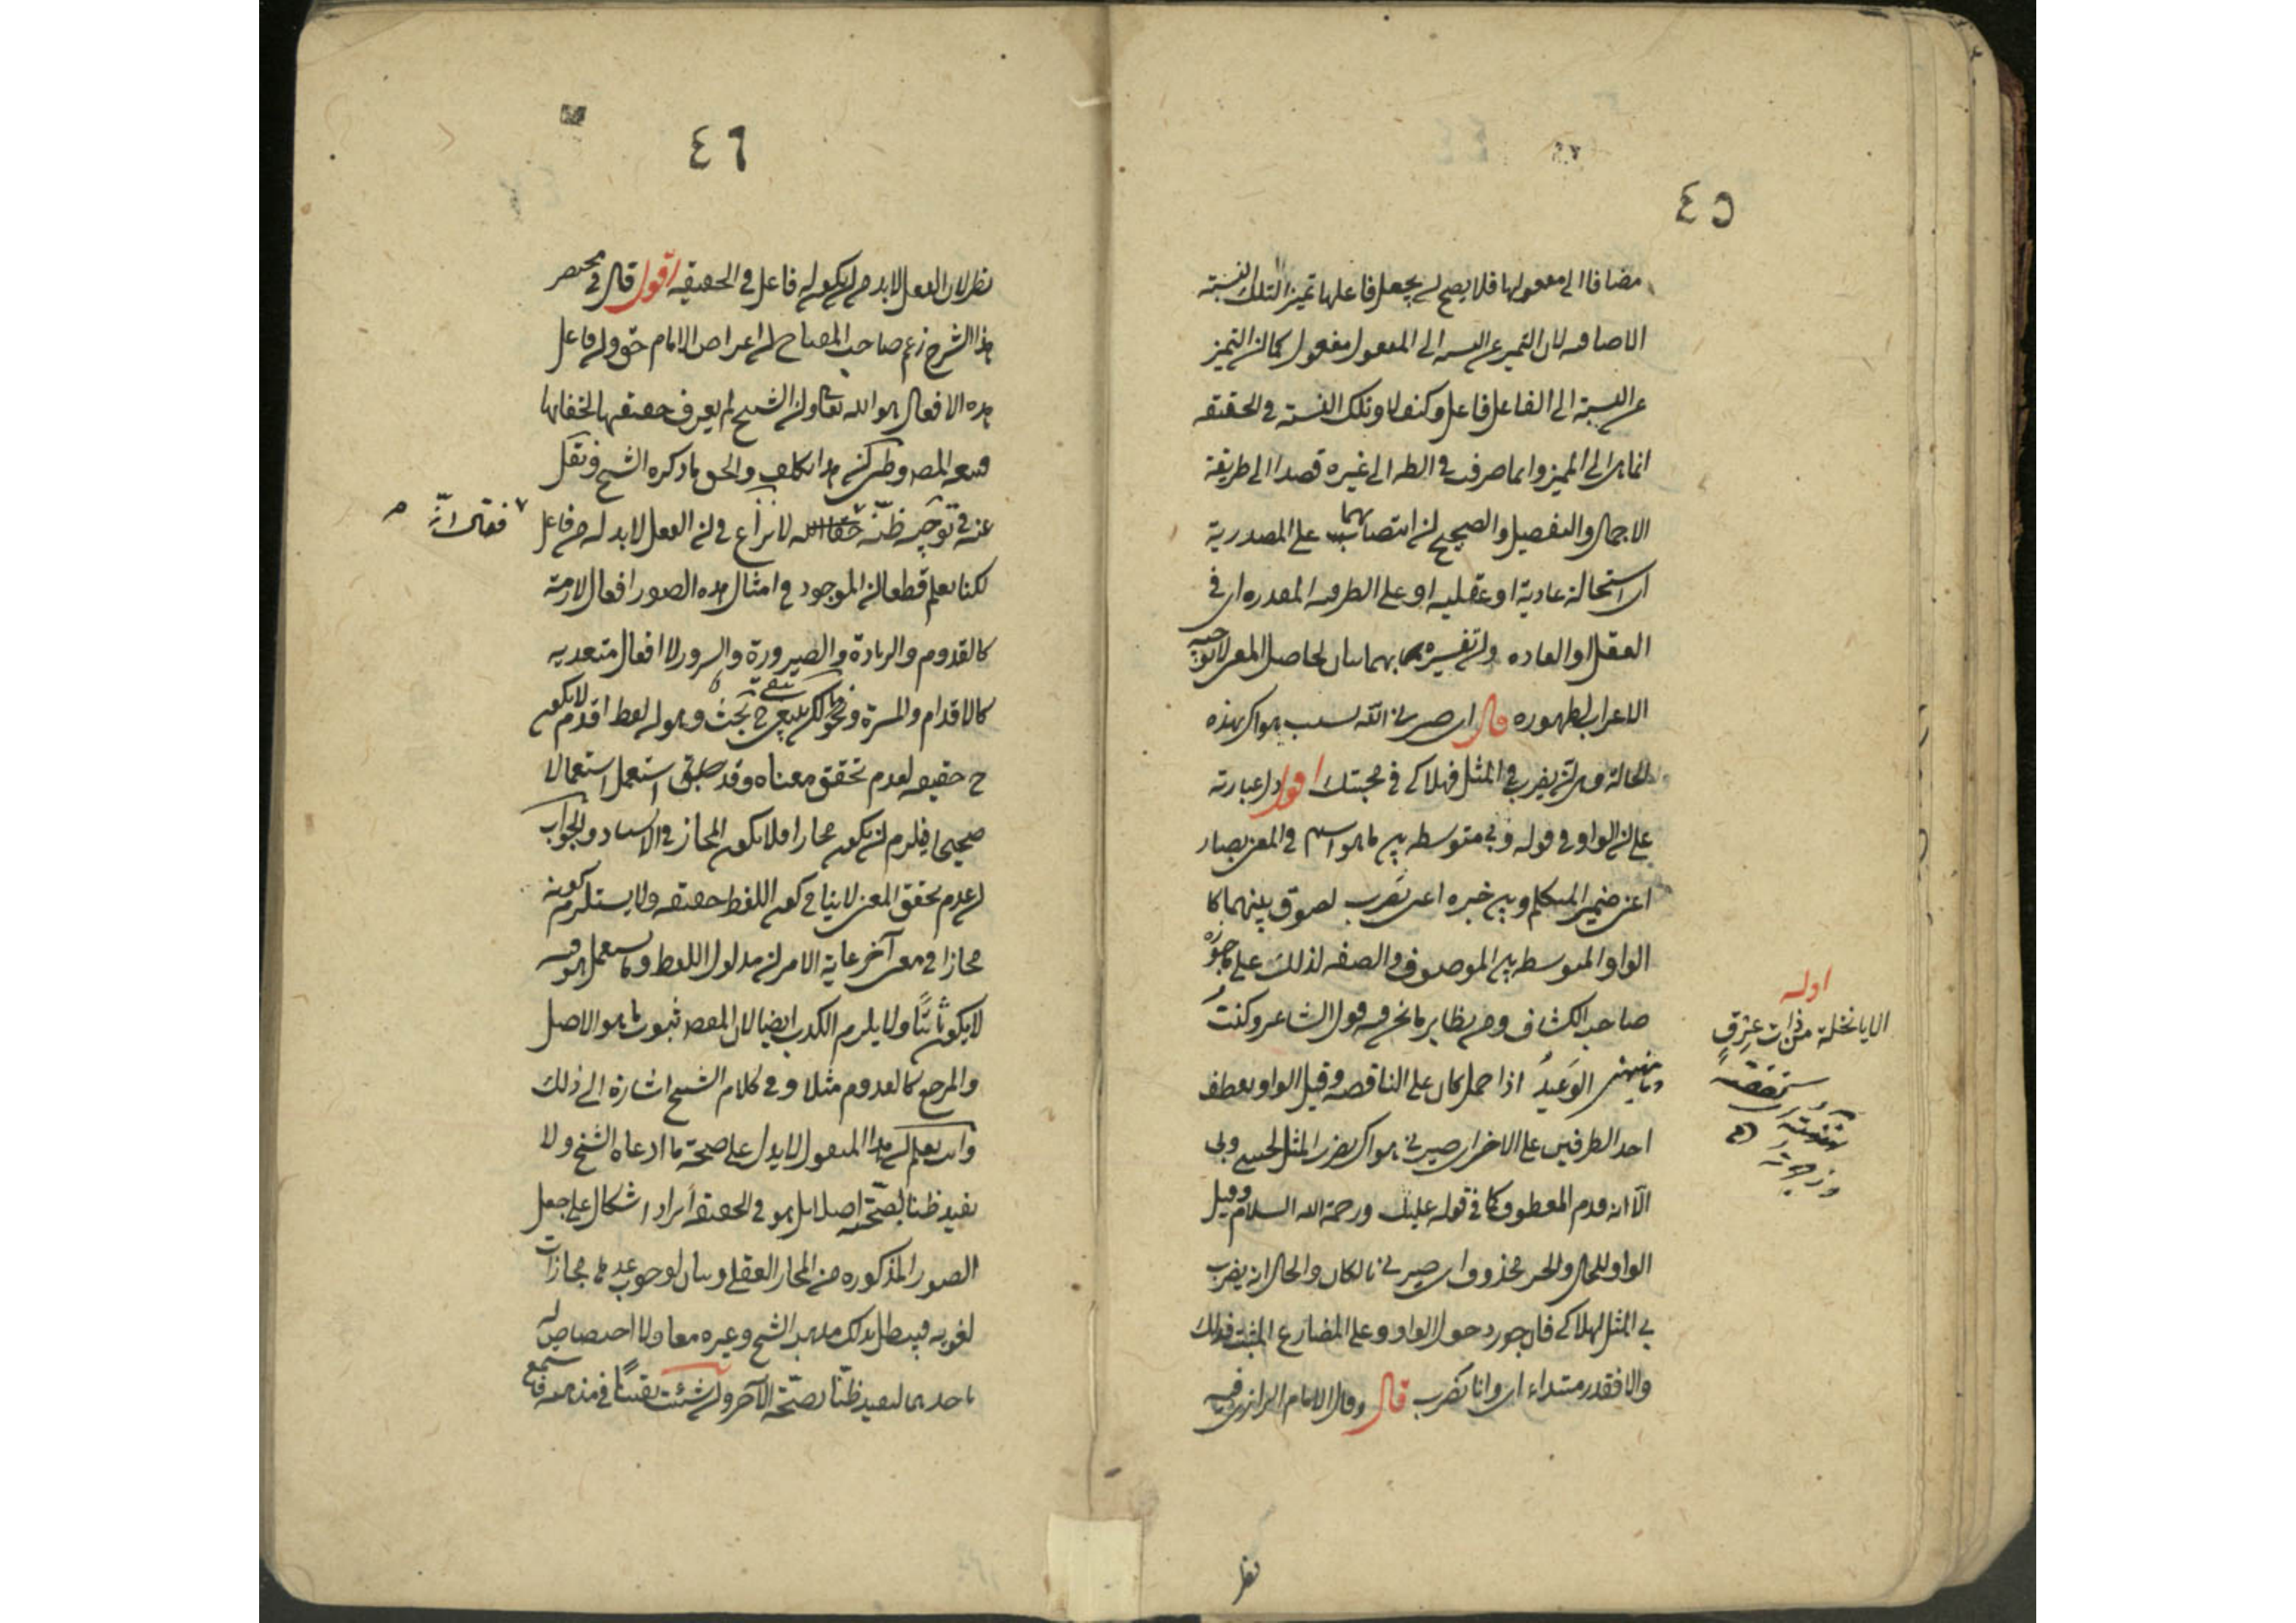 ٤٥
مضافا الى معمولها فلا يصح ان يجعل فاعلها تميزا لتلك النسبة
الاضافه لان التميز عن النسبه الى المفعول مفعول كما ان التميز
عن النسبة الى الفاعل فاعل وكيف لا وتلك النسبة في الحقيقه
انما هى الى المميز وانما صرفت في الظ الى غيره قصدا الى طريقة
الاجمال والتفصيل والصحيح ان انتصابهما على المصدرية
اى استحالة عادية او عقليه او على الظرفيه المقدره اى في
العقل او العاده وان تفسيره بهما بيان لحاصل المعنى لا توجيه
الاعراب لظهوره قال اى صيرنى الله لسبب هواك بهذه
الحالة وهى ان يضرب بى المثل فهلاكى في محبتك اقول دل عبارته
على ان الواو في قوله وبى متوسطه بين ما هو اسم في المعنى لصار
اعنى ضمير المتكلم وبين خبره اعنى يضرب لصوق بينهما كا
الواو المتوسطه بين الموصوف والصفه لذلك على ما جوزه
صاحب الكشاف ومن نظاير ما نحن فيه قول الشاعر وكنتُ
وما ينهنهنى الوَعِيدُ اذا حمل كان على الناقصه وقيل الواو لعطف
احد الطرفين على الاخر اى صيرنى هواك يضرب المثل لحينى وبى
الا انه قدم المعطوف كما في قوله عليك ورحمة الله السلام وقيل
الواو للحال والخبر محذوف اى صيرنى هالكا والحال انه يضرب
بى المثل لهلاكى فان جوز دخول الواو على المضارع المثبت فذلك
والا فقدر مبتداء اى وانا يضرب قال وقال الامام الرازى فيه
اوله
الا يا نخلة من ذات عِرقٍ
نظر
٤٦
نظر لان الفعل لا بد من ان يكون له فاعل في الحقيقه اقول قال في مختصر
هذا الشرح زعم صاحب المفتاح ان اعتراض الامام حق وان فاعل
هذه الافعال هو الله تعالى وان الشيخ لم يعرف حقيقتها لخفائها
فتبعه المص وظنى ان هذا تكلف والحق ما ذكره الشيخ ونقل
عنه في توجيه ظنّه لا نزاع في ان الفعل لا بد له من فاعل
فقال انّه
لكنا نعلم قطعا ان الموجود في امثال هذه الصور افعال لازمة
كالقدوم والزيادة والصيرورة والسرور لا افعال متعديه
كالاقدام والمسرة ونحو ذلك بقى ح بحث وهو ان لفظ اقدم لا يكون
ح حقيقه لعدم تحقق معناه وقد استعمل استعمالا
صحيحا فيلزم ان يكون مجازا فلا يكون المجاز في الاسناد والجواب
ان عدم تحقق المعنى لا ينافى كون اللفظ حقيقه ولا يستلزم كونه
مجازا في معنى آخر غاية الامر ان مدلول اللفظ وما يستعمل هو فيه
لا يكون ثابتًا ولا يلزم الكذب ايضا لان المقصد ثبوت ما هو الاصل
والمرجع كالقدوم مثلا وفي كلام الشيخ اشارة الى ذلك
وانت تعلم ان هذا المنقول لا يدل على صحة ما ادعاه الشيخ ولا
يفيد ظنا بصحّته اصلا بل هو في الحقيقه ايراد اشكال على جعل
الصور المذكوره من المجاز العقلى وبيان لوجوب عدها مجازات
لغويه فيبطل بذلك مذهب الشيخ وغيره معا ولا اختصاص له
باحدهما ليفيد ظنّا بصحّة الآخر وان شئت يقينًا في مذهبه فاستمع